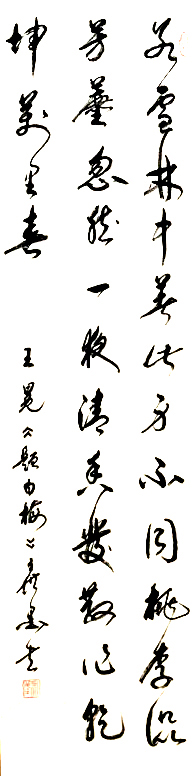 冰雪林中著此身不同桃李混
芳塵忽然一夜清香發散作乾
坤萬里春
王冕《题白梅》